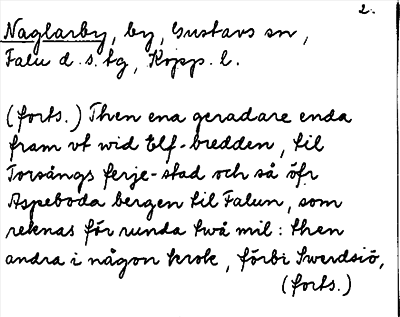 2.
Naglarby, by, Gustavs sn,
Falu d.s. tg, Kopp. l.
(forts.) Then ena geradare enda
fram vt wid Elf-bredden, til
Torsångs ferje-stad och så öfr
Aspeboda bergen til Falun, som
reknas för runda twå mil: then
andra i någon krok, förbi Swerdsiö,
(forts.)